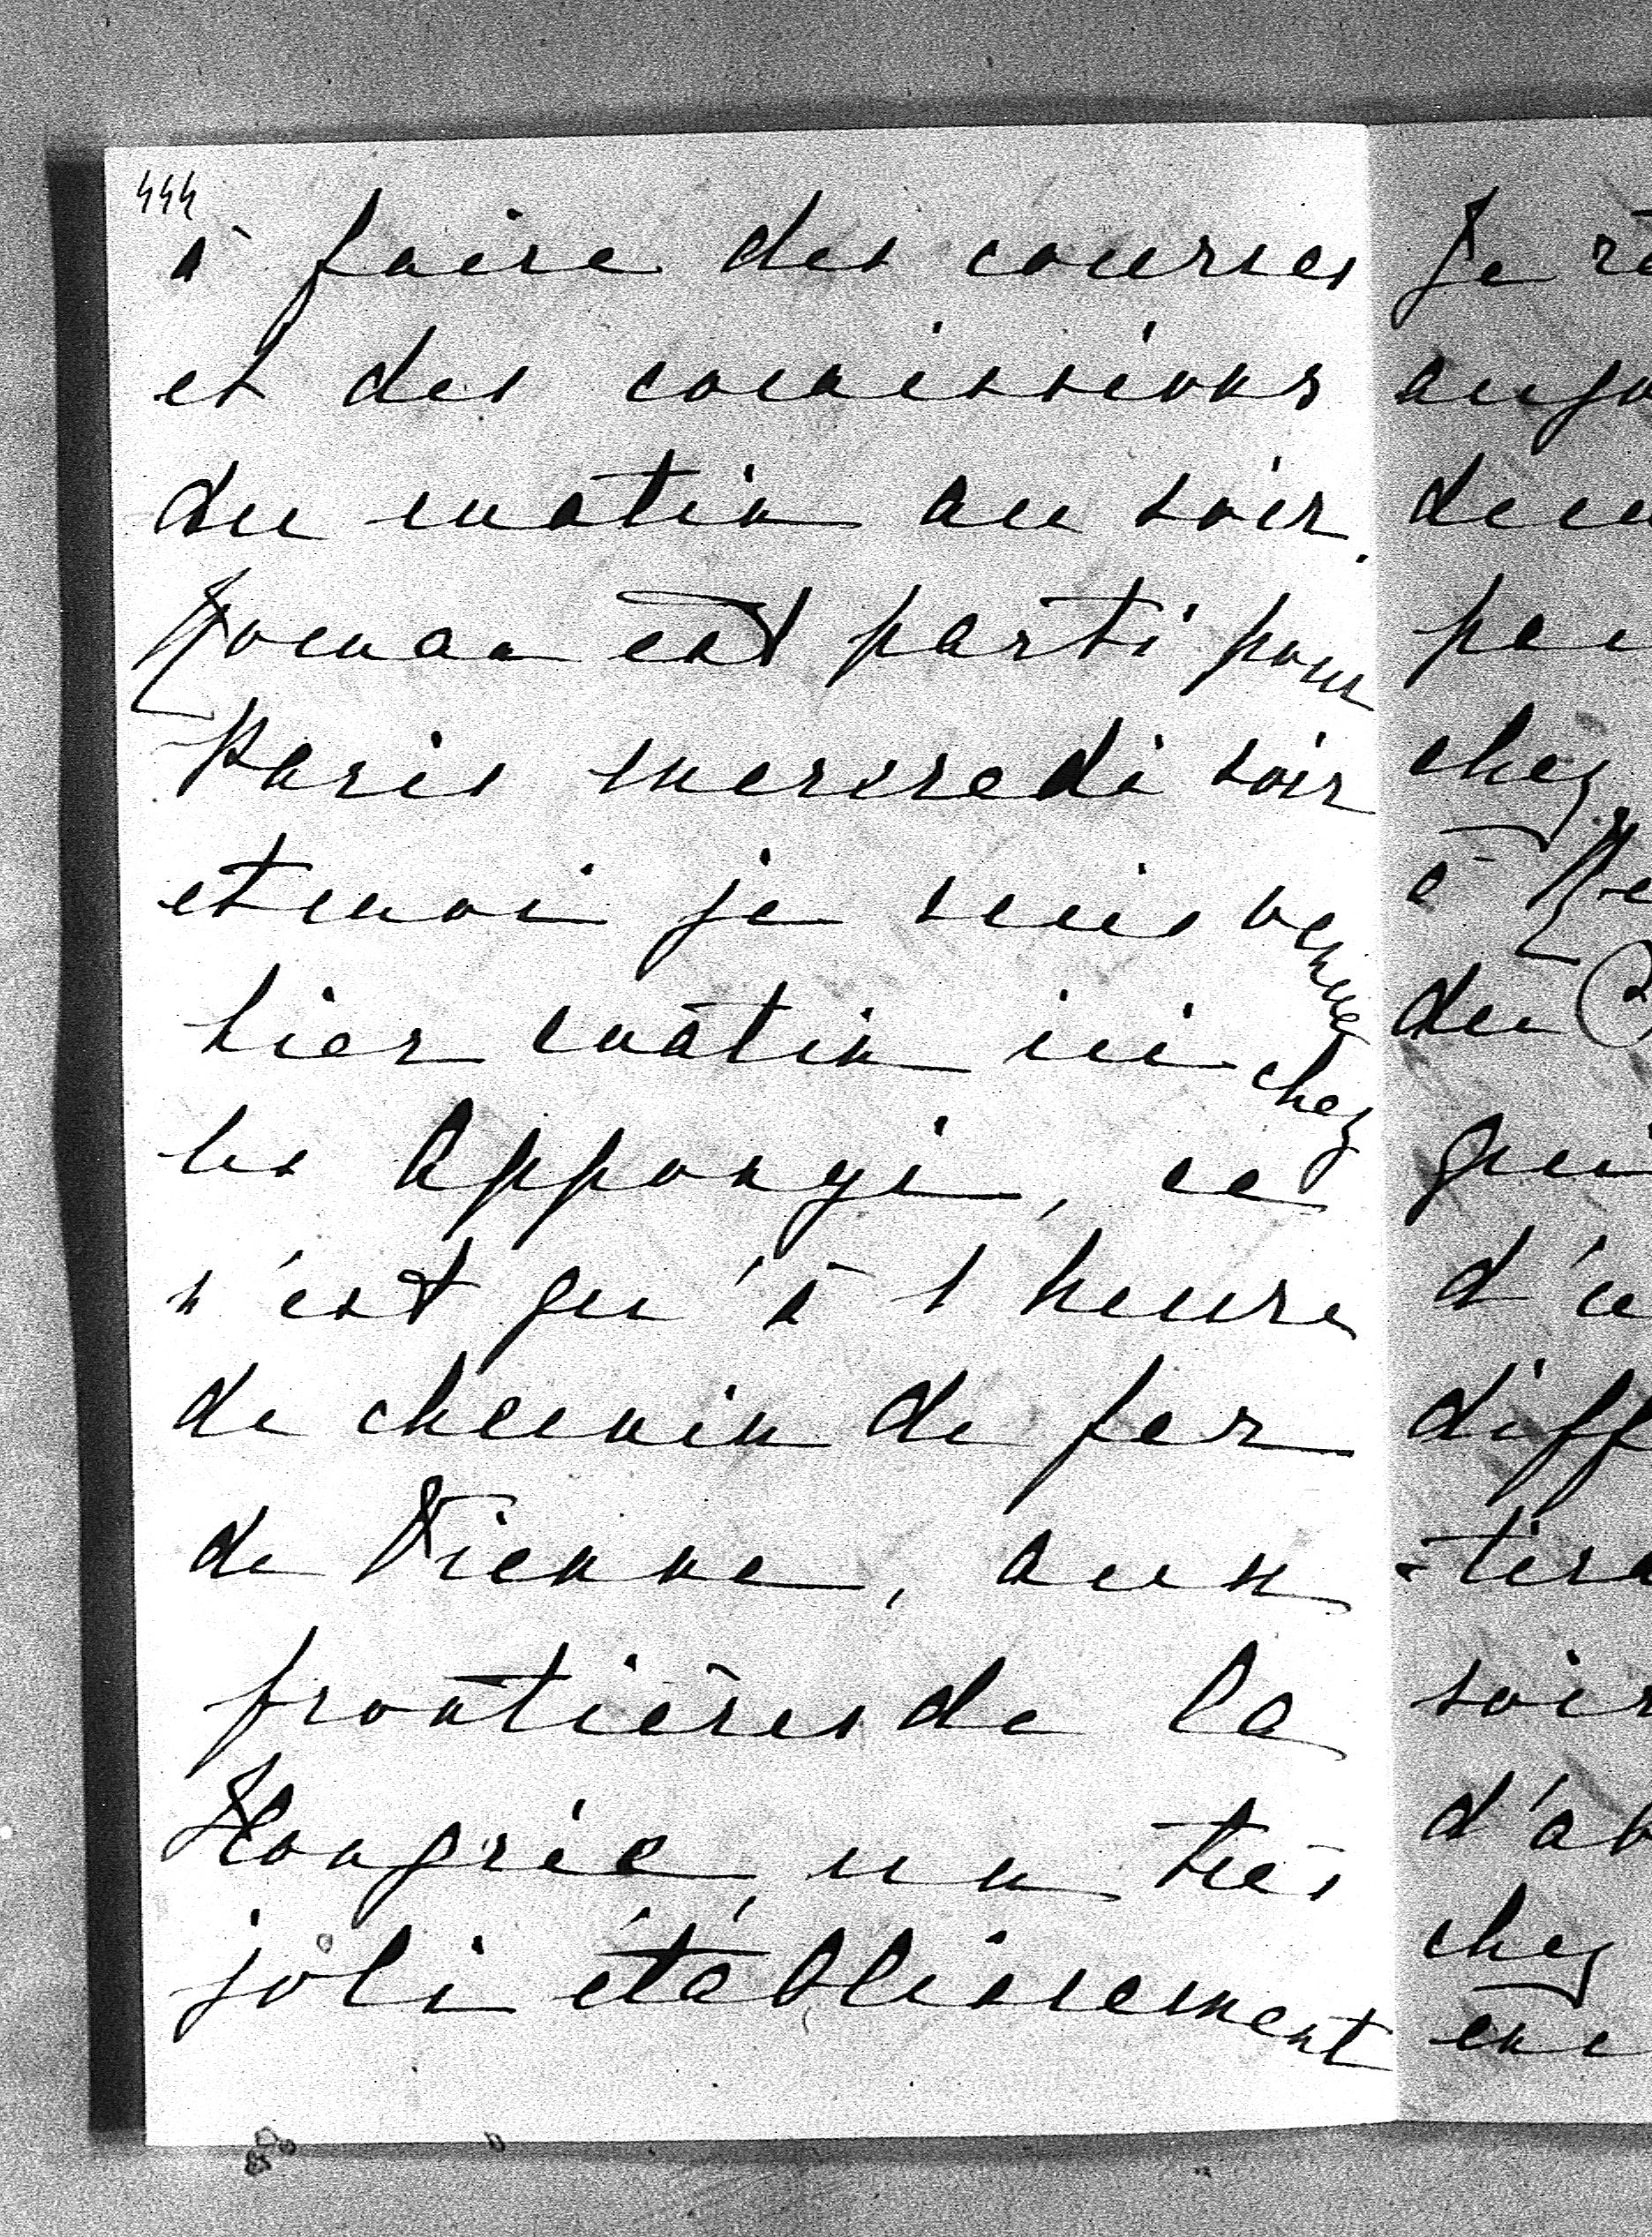 444
à faire des courses
et des comissions
du matin au soir.
Roman est parti pour
Paris mercredi soir
et moi je suis venue
hier matin ici chez
les Apponyi, ce
n'est qu'à 1 heure
de chemin de fer
de Vienne, aux
frontières de la
Hongrie, un très
joli établissement
Je
chez
à
du
qui
d'u
diff
-tira
soir
d'ab
chez